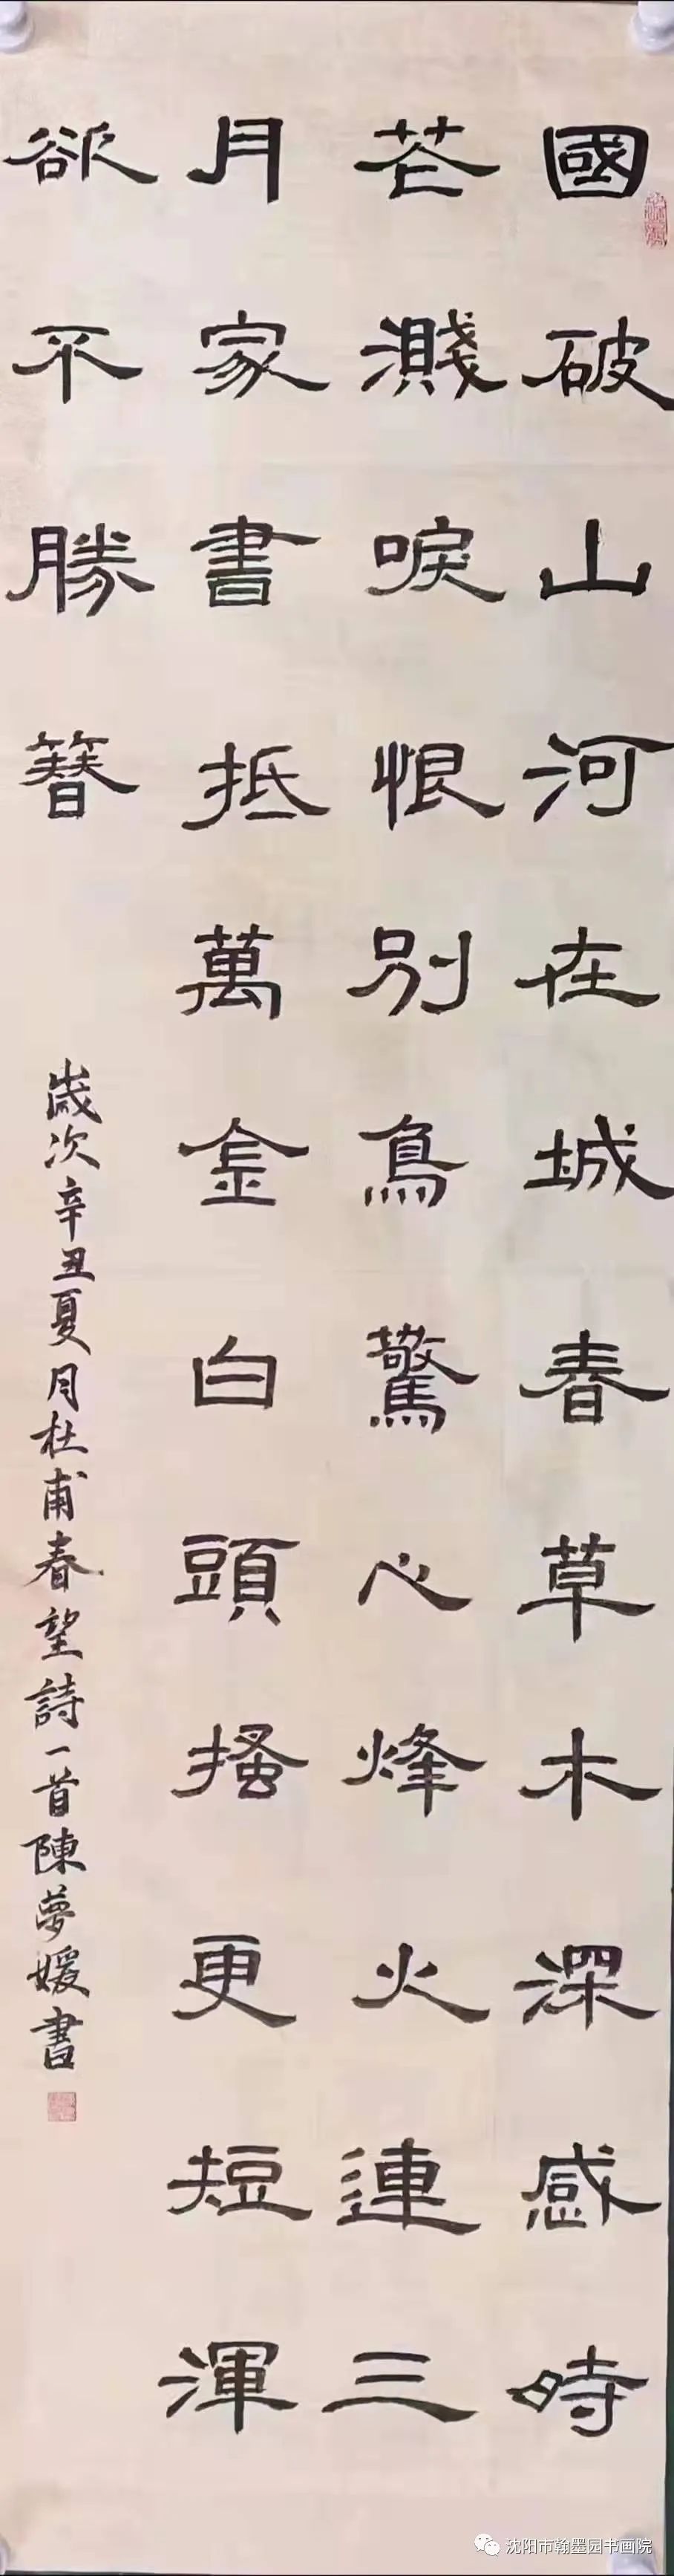 國破山河在城春草木深感時
花濺唳恨別鳥驚心烽火連三
月家書抵萬金白頭搔更短渾
欲不勝簪
歲次辛丑夏月杜甫春望詩一首陳夢媛書
沈阳市翰墨园书画院